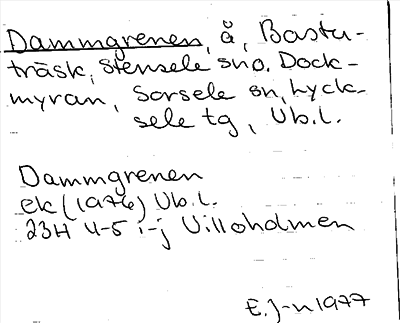 Dammgrenen, å, Bastu-
träsk, Stensele sno. Dock-
myran, Sorsele sn, Lyck-
sele tg, Vb.l.
Dammgrenen
ek (1976) Vb.l.
23H 4-5 i-j Villoholmen
E.J-n 1977